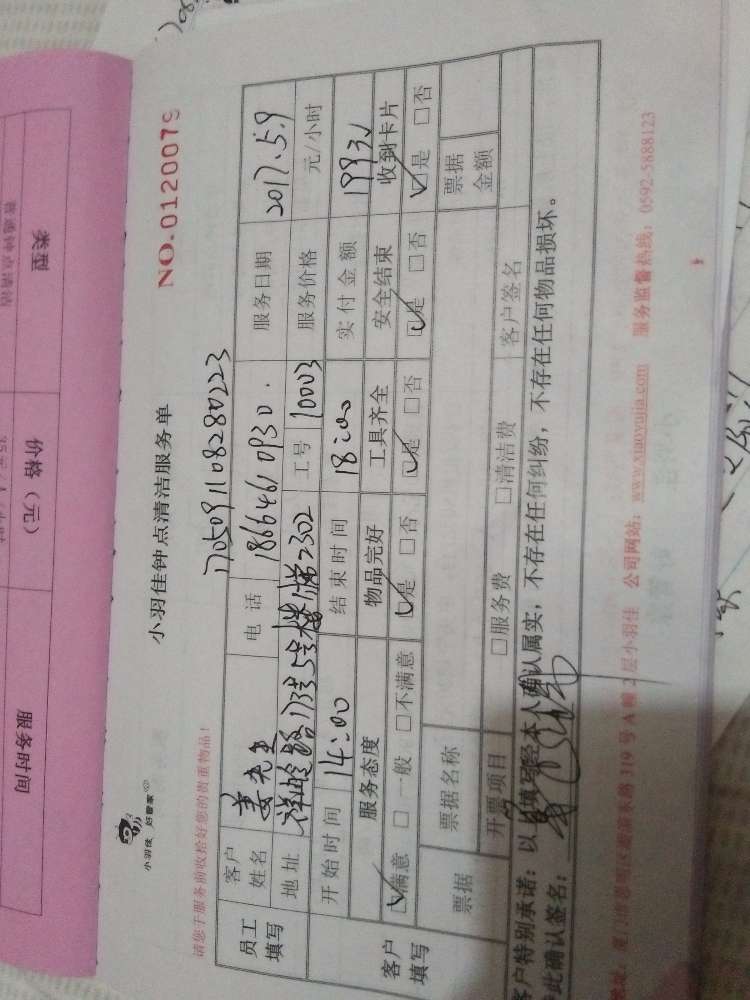 小羽佳 好管家
小羽佳钟点清洁服务单
NO.0120079
请您于服务前收拾好您的贵重物品!
1705091108280223
员工填写
客户姓名 姜先生 电话 18664610930. 服务日期 2017.5.9
地址 祥岭路173号5号楼1梯2302 工号 10003 服务价格 元/小时
开始时间 14:00 结束时间 18:00 实付金额
客户填写
服务态度 物品完好 工具齐全 安全结束 收到卡片
☑满意 □一般 □不满意 ☑是 □否 ☑是 □否 ☑是 □否 ☑是 □否
票据 票据名称 票据金额
开票项目 □服务费 □清洁费 客户签名
客户特别承诺:以上填写经本人确认属实,不存在任何纠纷,不存在任何物品损坏。
此确认签名:
319号A幢2层小羽佳 公司网站:www.xiaoyujia.com 服务监督热线:0592-5888123
类型 价格(元) 服务时间
普通钟点清洁